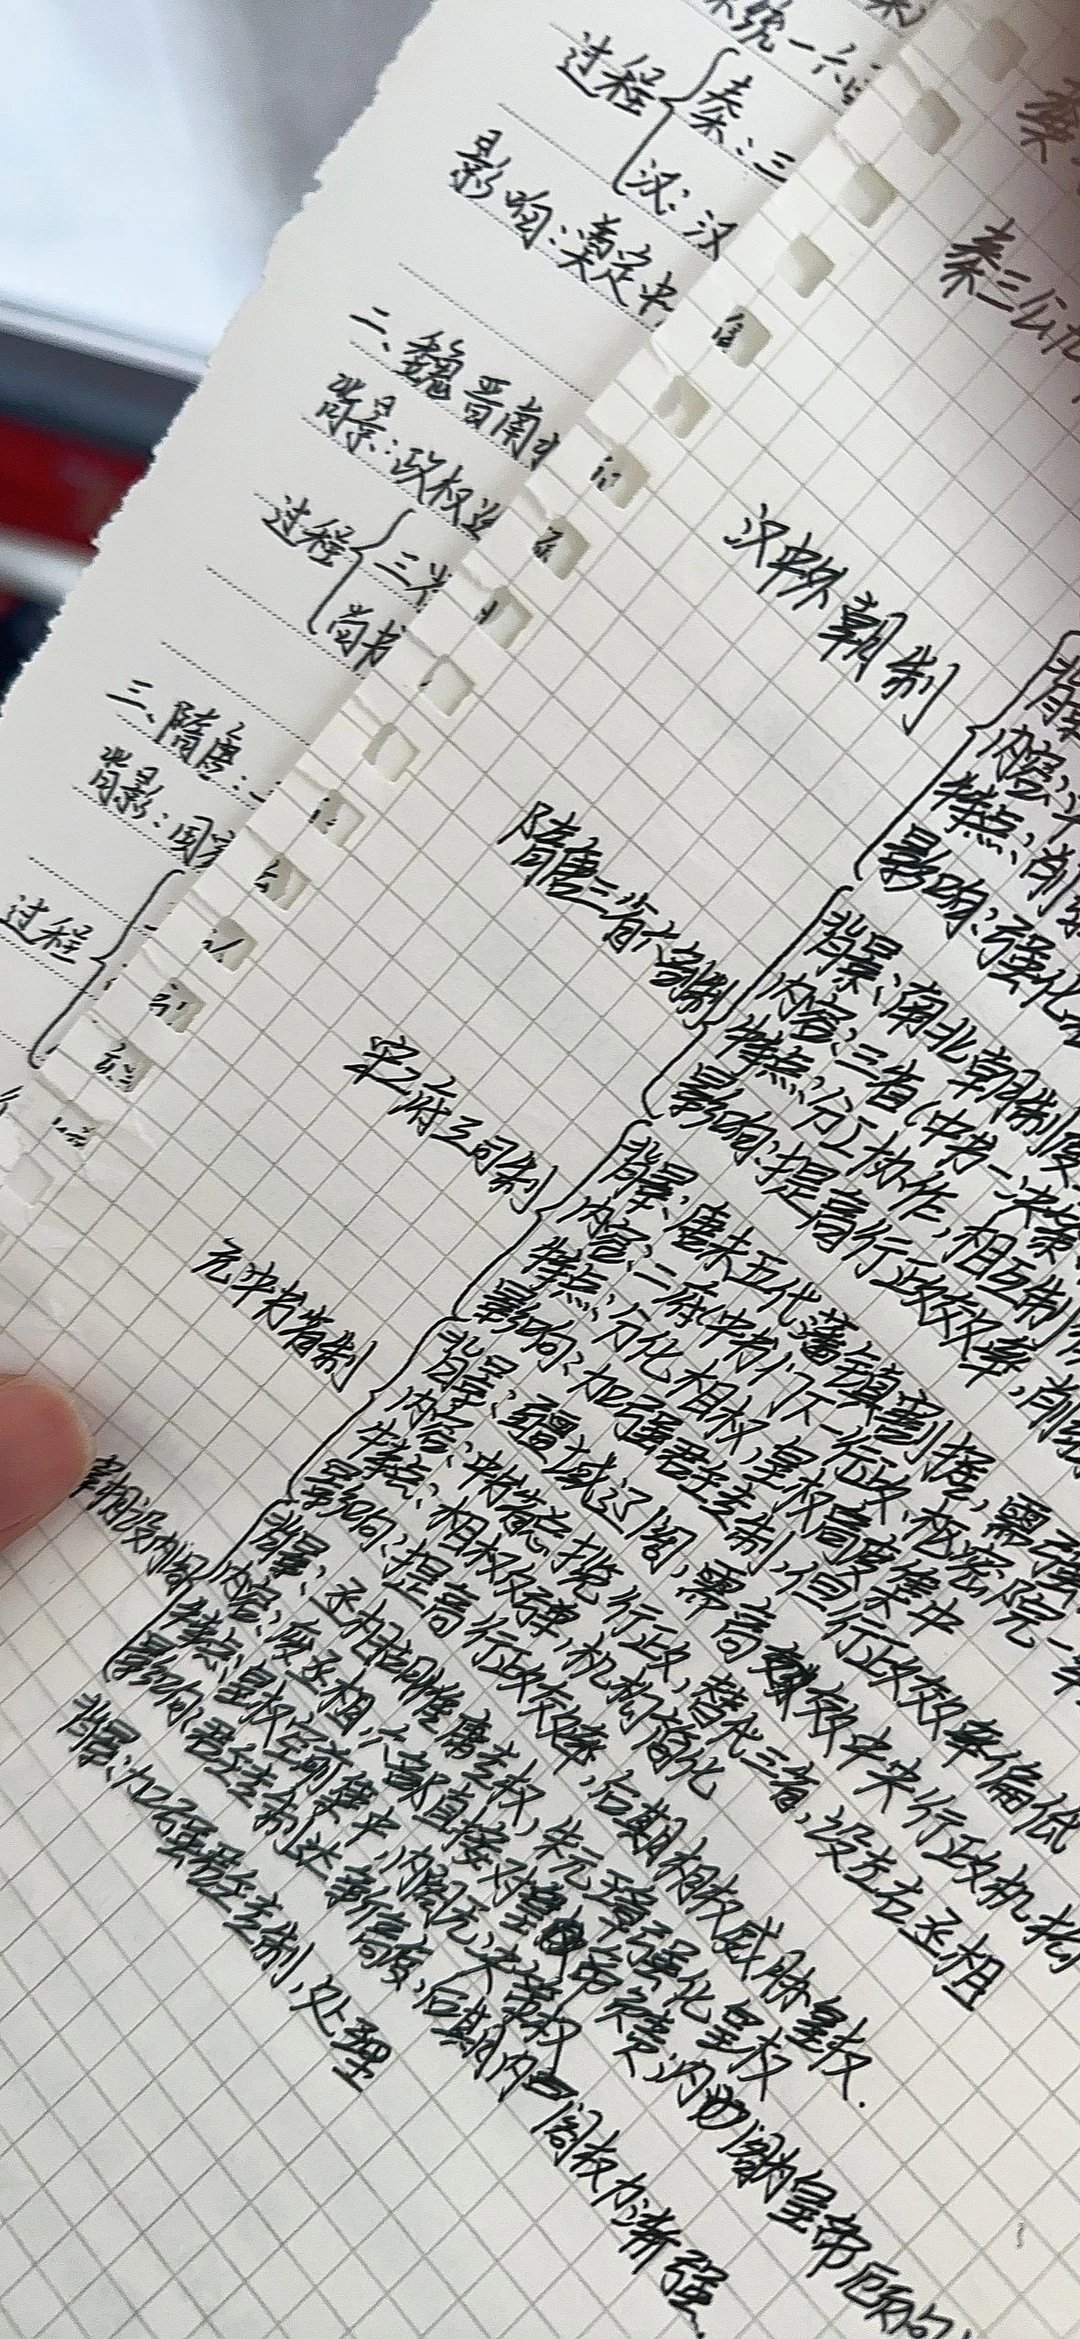 统一六
过程
秦:三
汉:汉
影响:奠定中
二、魏晋南
背景:政权
过程
三
尚书
三、隋唐:
背影:国家
过程
秦三公九
汉中外朝制
背景
内容:
特点:削
影响:强化
隋唐三省六部制
背景:南北朝制度
内容:三省(中书一决策
特点:分工协作,相互制
影响:提高行政效率,削
宋二府三司制
背景:唐末五代藩镇割据,需强
内容:二府(中书门下一行政、枢密院一
特点:分化相权,皇权高度集中
影响:加强君主专制,但行政效率偏低
元中书省制
背景:疆域辽阔,需高效中央行政机构
内容:中书省总揽行政,替代三省,设左右丞相
特点:相权及弹,机构简化
影响:提高行政效率,后期相权威胁皇权.
宰相设内阁
背景:丞相制度 专权,朱元璋强化皇权
内容:废丞相,六部直接对皇帝负责;内阁为皇帝顾问
特点:皇权空前集中,内阁无决策权
影响:君主专制达新高度,后期内阁权力渐强
背景:加强君主专制,处理